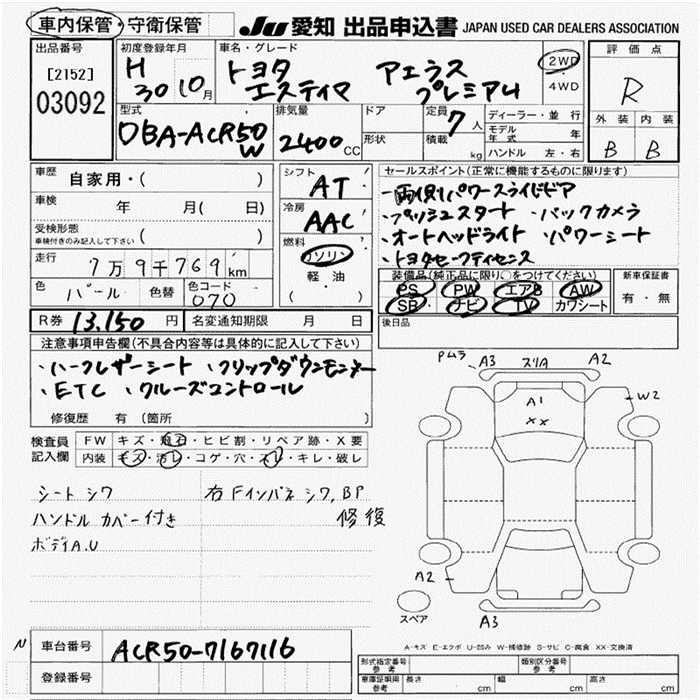 車内保管・守衛保管 JU 愛知 出品申込書 JAPAN USED CAR DEALERS ASSOCIATION
出品番号 初度登録年月 車名・グレード 評価点
[2152] H 30 10月 トヨタ アエラス 2WD・4WD R
03092 エスティマ プレミアム
型式 排気量 ドア 定員 ディーラー・並行 外装 内装
DBA-ACR50W 2400CC 形状 7人 積載 kg モデル年式 年 B B
ハンドル 左・右
車歴 自家用・( ) シフト AT セールスポイント(正常に機能するものに限ります)
車検 年 月( 日) 冷房 AAC ・両側パワースライドドア
受検形態 ( ) ・プッシュスタート ・バックカメラ
車検付きのみ記入して下さい 燃料 ガソリン ・オートヘッドライト ・パワーシート
走行 7万9千769km 軽・油 ・トヨタセーフティセンス
色 パール 色替 色コード 070 ( ) 装備品(純正品に限り○をつけてください) 新車保証書
PS PW エアB AW 有・無
SB ナビ TV カワシート
R券 13,150円 名変通知期限 月 日 後日品
注意事項申告欄(不具合内容等は具体的に記入して下さい)
・ハーフレザーシート ・フリップダウンモニター
・ETC ・クルーズコントロール
修復歴 有(箇所 )
検査員記入欄 FW キズ・飛石・ヒビ割・リペア跡・X要
内装 キズ・汚レ・コゲ・穴・スレ・キレ・破レ
シートシワ 右Fインパネシワ,BP
ハンドルカバー付き 修復
ボディA.U
Pムラ A3 スリA A2
A1
XX
W2
A2
スペア A3
N 車台番号 ACR50-7167116
登録番号
A-キズ E-エクボ U-凹み W-補修跡 S-サビ C-腐食 XX-交換済
形式指定番号 参考 類別区分番号 参考
車庫証明用 参考 長さ cm 幅 cm 高さ cm